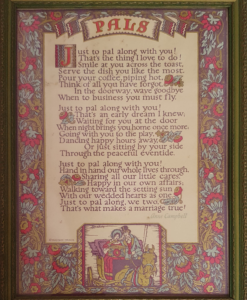 PALS
Just to pal along with you!
That's the thing I love to do!
Smile at you across the toast,
Serve the dish you like the most.
Pour your coffee, piping hot,
Think of all you have forgot,
In the doorway, wave goodbye
When to business you must fly.
Just to pal along with you!
That's an early dream I knew;
Waiting for you at the door
When night brings you home once more,
Going with you to the play,
Dancing happy hours away,
Or just sitting by your side
Through the peaceful eventide.
Just to pal along with you!
Hand in hand our whole lives through,
Sharing all our little cares,
Happy in our own affairs;
Walking toward the setting sun
With our wedded hearts as one;
Just to pal along, we two,
That's what makes a marriage true!